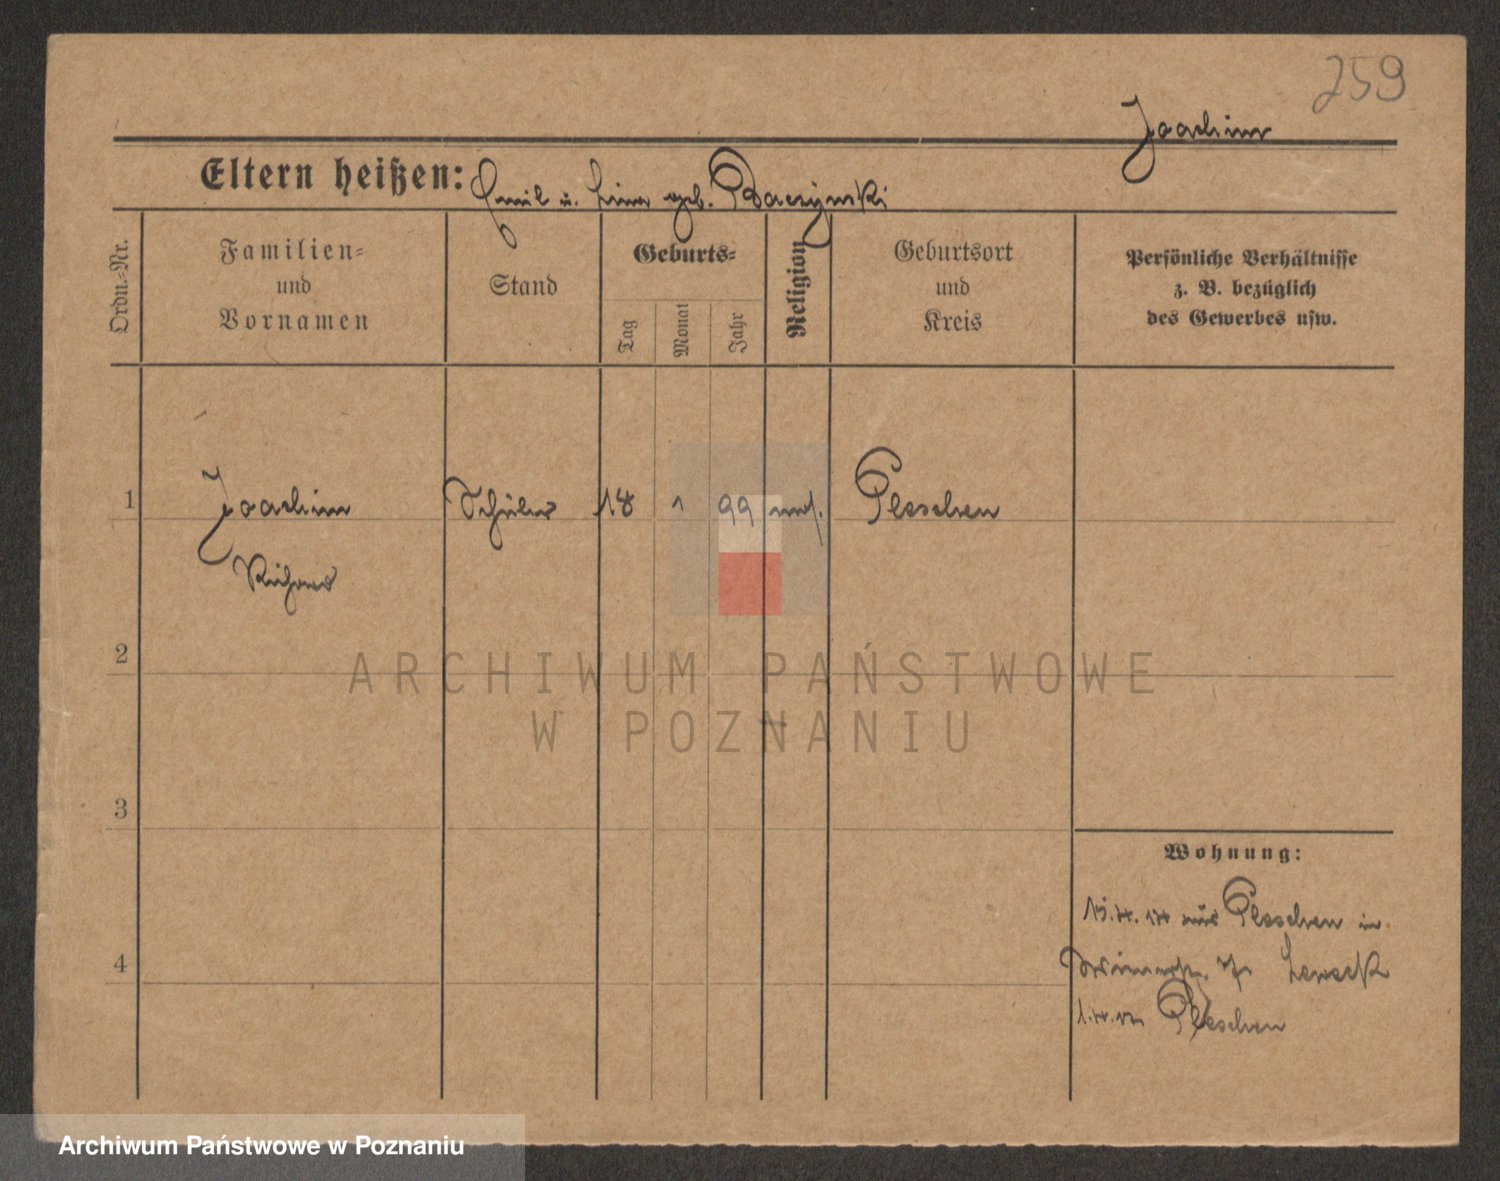 259
Joachim
Eltern heißen: Emil u. geb. Baczynski
Ordn.-Nr.
Familien-
und
Vornamen
Stand
Geburts-
Tag
Monat
Jahr
Religion
Geburtsort
und
Kreis
Persönliche Verhältnisse
z. B. bezüglich
des Gewerbes usw.
1
Joachim Schüler 18 1 99 Pleschen
2
3
4
Wohnung:
aus Pleschen in
Pleschen
ARCHIWUM PAŃSTWOWE
W POZNANIU
Archiwum Państwowe w Poznaniu